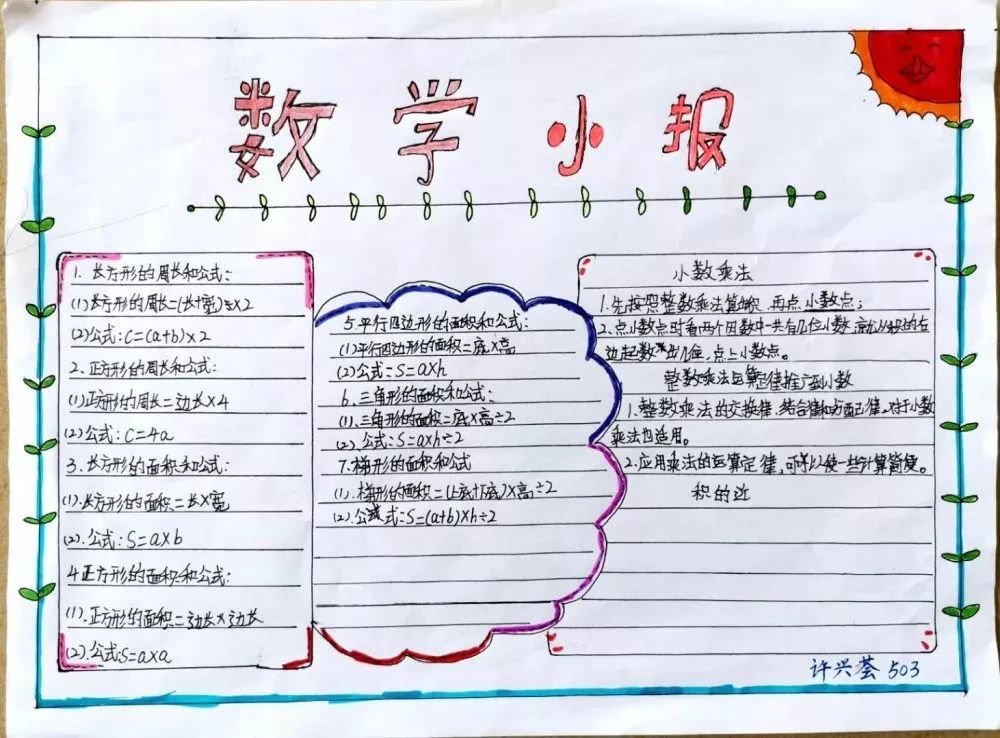 数学小报
1. 长方形的周长和公式:
(1)长方形的周长=(长+宽)×2
(2)公式:C=(a+b)×2
2.正方形的周长和公式:
(1)正方形的周长=边长×4
(2)公式:C=4a
3.长方形的面积和公式:
(1).长方形的面积=长×宽
(2).公式:S=a×b
4正方形的面积和公式:
(1).正方形的面积=边长×边长
(2).公式S=a×a
5.平行四边形的面积和公式:
(1)平行四边形的面积=底×高
(2)公式:S=a×h
6.三角形的面积和公式:
(1).三角形的面积=底×高÷2
(2).公式:S=a×h÷2
7.梯形的面积和公式
(1).梯形的面积=(上底+下底)×高÷2
(2).公式:S=(a+b)×h÷2
小数乘法
1.先按照整数乘法算积,再点小数点;
2.点小数点时看两个因数中一共有几位小数,就从积的右
边起数出几位,点上小数点。
整数乘法运算定律推广到小数
1.整数乘法的交换律,结合律和分配律,对于小数
乘法也适用。
2.应用乘法的运算定律,可以使一些计算简便。
积的近
许兴荟 503